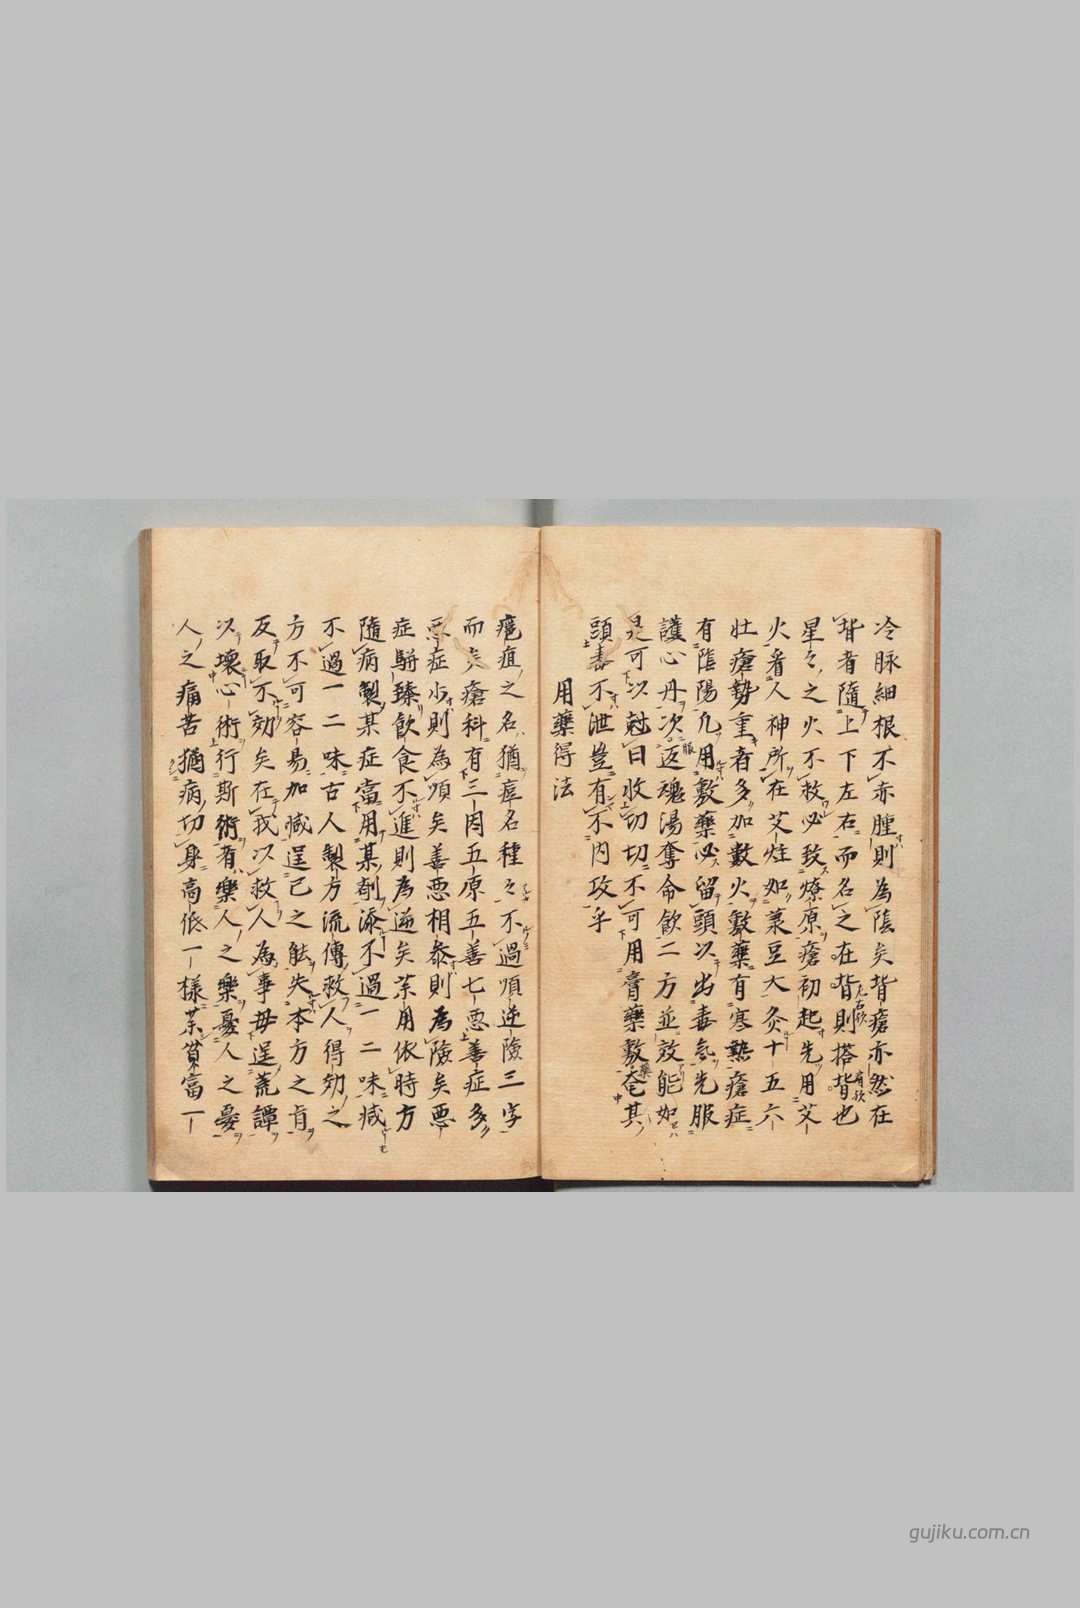 冷脉細根不赤腫則為陰矣背瘡亦然在
背者隨上下左右而名之在背則搭背也
星々之火不救必致燎原瘡初起先用艾
火看人神所在艾炷如菉豆大灸十五六
壮瘡勢重者多加數火敷藥有寒熱瘡症
有陰陽凡用敷藥必留頭以出毒氣先服
護心丹次返魂湯奪命飲二方並效能如
是可以尅日收切切不可用膏藥敷奄其
頭毒不泄豈有不内攻乎
用藥得法
疤疽之名猶瘴名種々不過順逆險三字
而瘡科有三因五原五善七悪善症多
悪症少則為順矣善悪相叅則為險矣悪
症駢臻飲食不進則為逆矣茶用依時方
隨病製某症當用某劑添不過一二味減
不過一二味古人製方流傳救人得効之
方不可容易加減逞已之能失本方之肓
反取不効矣在我以救人為事毋逞荒譚
以壞心術行斯術者樂人之樂憂人之憂
人之痛苦猶病切身高低一樣茶貧富一
gujiku.com.cn